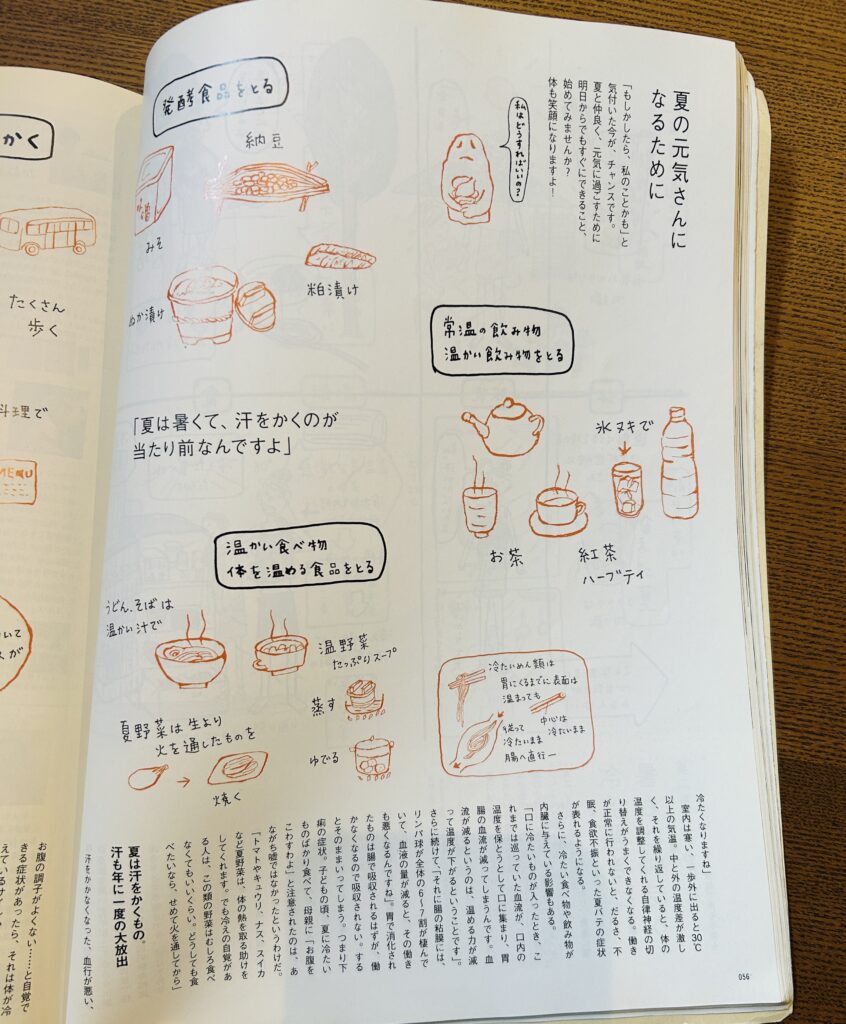 夏の元気さんに
なるために
「もしかしたら、私のことかも」と
気付いた今が、チャンスです。
夏と仲良く、元気に過ごすために
明日からでもすぐにできること、
始めてみませんか？
体も笑顔になりますよ！
私はどうすればいいの？
発酵食品をとる
納豆
みそ
ぬか漬け
粕漬け
常温の飲み物
温かい飲み物をとる
氷ヌキで
お茶
紅茶
ハーブティ
「夏は暑くて、汗をかくのが
当たり前なんですよ」
温かい食べ物
体を温める食品をとる
うどん、そばは
温かい汁で
温野菜
たっぷりスープ
蒸す
夏野菜は生より
火を通したものを
ゆでる
焼く
冷たいめん類は
胃にくるまでに表面は
温まっても
中心は
冷たいまま
従って
冷たいまま
腸へ直行ー
冷たくなりますね」
室内は寒い、一歩外に出ると30℃
以上の気温。中と外の温度差が激し
く、それを繰り返していると、体の
温度を調整してくれる自律神経の切
り替えがうまくできなくなる。働き
が正常に行われないと、だるさ、不
眠、食欲不振といった夏バテの症状
が表れるようになる。
さらに、冷たい食べ物や飲み物が
内臓に与えている影響もある。
「口に冷たいものが入ったとき、こ
れまでは巡っていた血流が、口内の
温度を保とうとして口に集まり、胃
腸の血流が減ってしまうんです。血
流が減るというのは、温める力が減
って温度が下がるということです」。
さらに続けて、「それに腸の粘膜には、
リンパ球が全体の6〜7割が棲んで
いて、血液の量が減ると、その働き
も悪くなるんですね」。胃で消化され
たものは腸で吸収されるはずが、働
かなくなるので吸収されない。する
とそのままいってしまう。つまり下
痢の症状。子どもの頃、夏に冷たい
ものばかり食べて、母親に「お腹を
こわすわよ」と注意されたのは、あ
ながち嘘ではなかったというわけだ。
「トマトやキュウリ、ナス、スイカ
など夏野菜は、体の熱を取る助けを
してくれます。でも冷えの自覚があ
る人は、この類の野菜はむしろ食べ
なくてもいいくらい。どうしても食
べたいなら、せめて火を通してから」
夏は汗をかくもの。
汗も年に一度の大放出
汗をかかなくなった、血行が悪い、
お腹の調子がよくない……と自覚で
きる症状があったら、それは体が冷
056
かく
たくさん
歩く
料理で
MENU